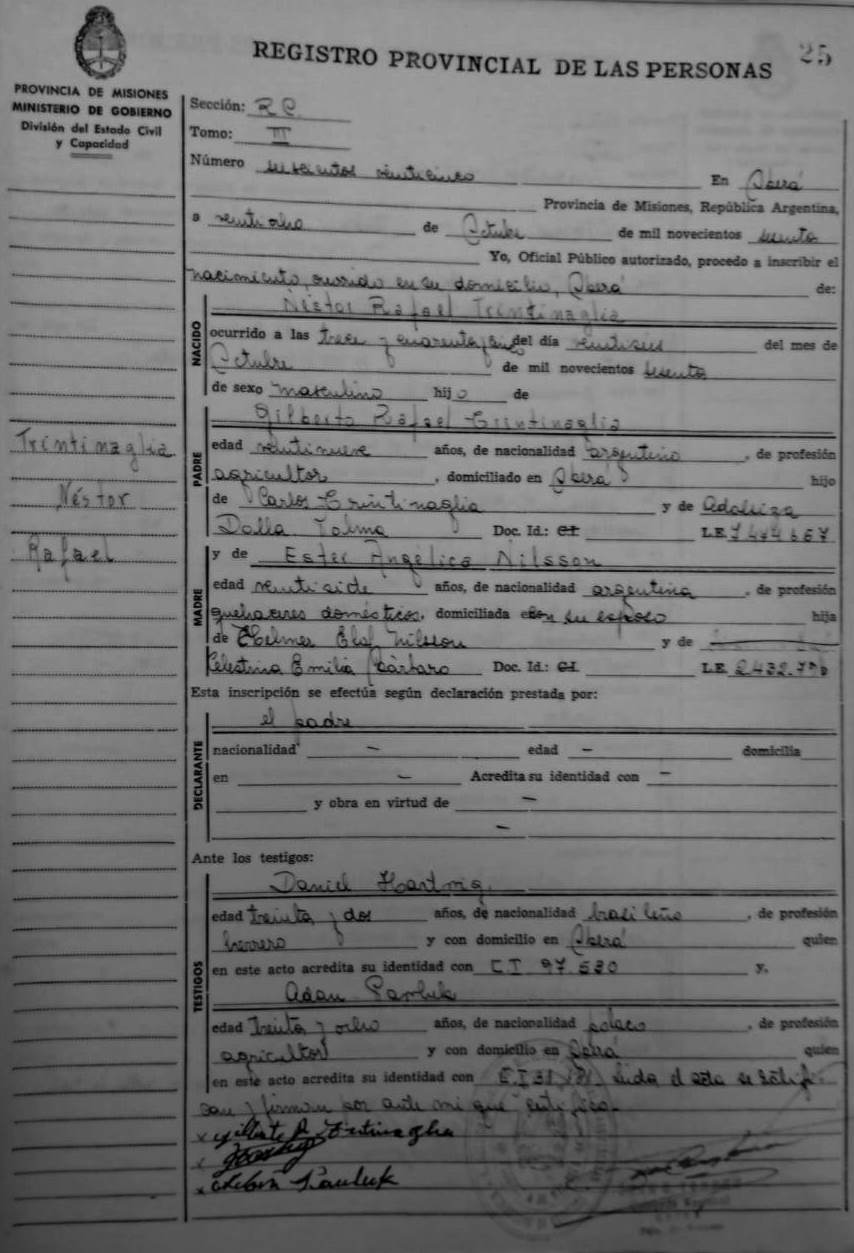 25
REGISTRO PROVINCIAL DE LAS PERSONAS
PROVINCIA DE MISIONES
MINISTERIO DE GOBIERNO
División del Estado Civil
y Capacidad
Sección: R C.
Tomo: III
Número seiscientos veinticinco En Oberá
Provincia de Misiones, República Argentina,
a veintiocho de Octubre de mil novecientos sesenta
Yo, Oficial Público autorizado, procedo a inscribir el
nacimiento, ocurrido en su domicilio, Oberá de:
NACIDO
Néstor Rafael Trintinaglia
ocurrido a las trece y cuarenta y cinco del día veintiseis del mes de
Octubre de mil novecientos sesenta
de sexo masculino hijo de
Trintinaglia
Néstor
Rafael
PADRE
Gilberto Rafael Trintinaglia
edad veintinueve años, de nacionalidad argentino, de profesión
agricultor, domiciliado en Oberá hijo
de Carlos Trintinaglia y de
Dalla Doc. Id.: CI LE
MADRE
y de Ester Angélica Nilsson
edad veintisiete años, de nacionalidad argentina, de profesión
quehaceres domésticos, domiciliada con su esposo hija
de Nilsson y de
Celestina Emilia Bárbaro Doc. Id.: CI LE 2.432.
Esta inscripción se efectúa según declaración prestada por:
DECLARANTE
el padre
nacionalidad — edad — domicilia
en — Acredita su identidad con —
y obra en virtud de —
—
Ante los testigos:
TESTIGOS
Daniel Hartwig
edad treinta y dos años, de nacionalidad brasileño, de profesión
herrero y con domicilio en Oberá quien
en este acto acredita su identidad con C I 97.530 y,
Adan Pawluk
edad treinta y ocho años, de nacionalidad polaco, de profesión
agricultor y con domicilio en Oberá quien
en este acto acredita su identidad con C I Leida el acta se ratifi-
can y firman por ante mí que certifico.